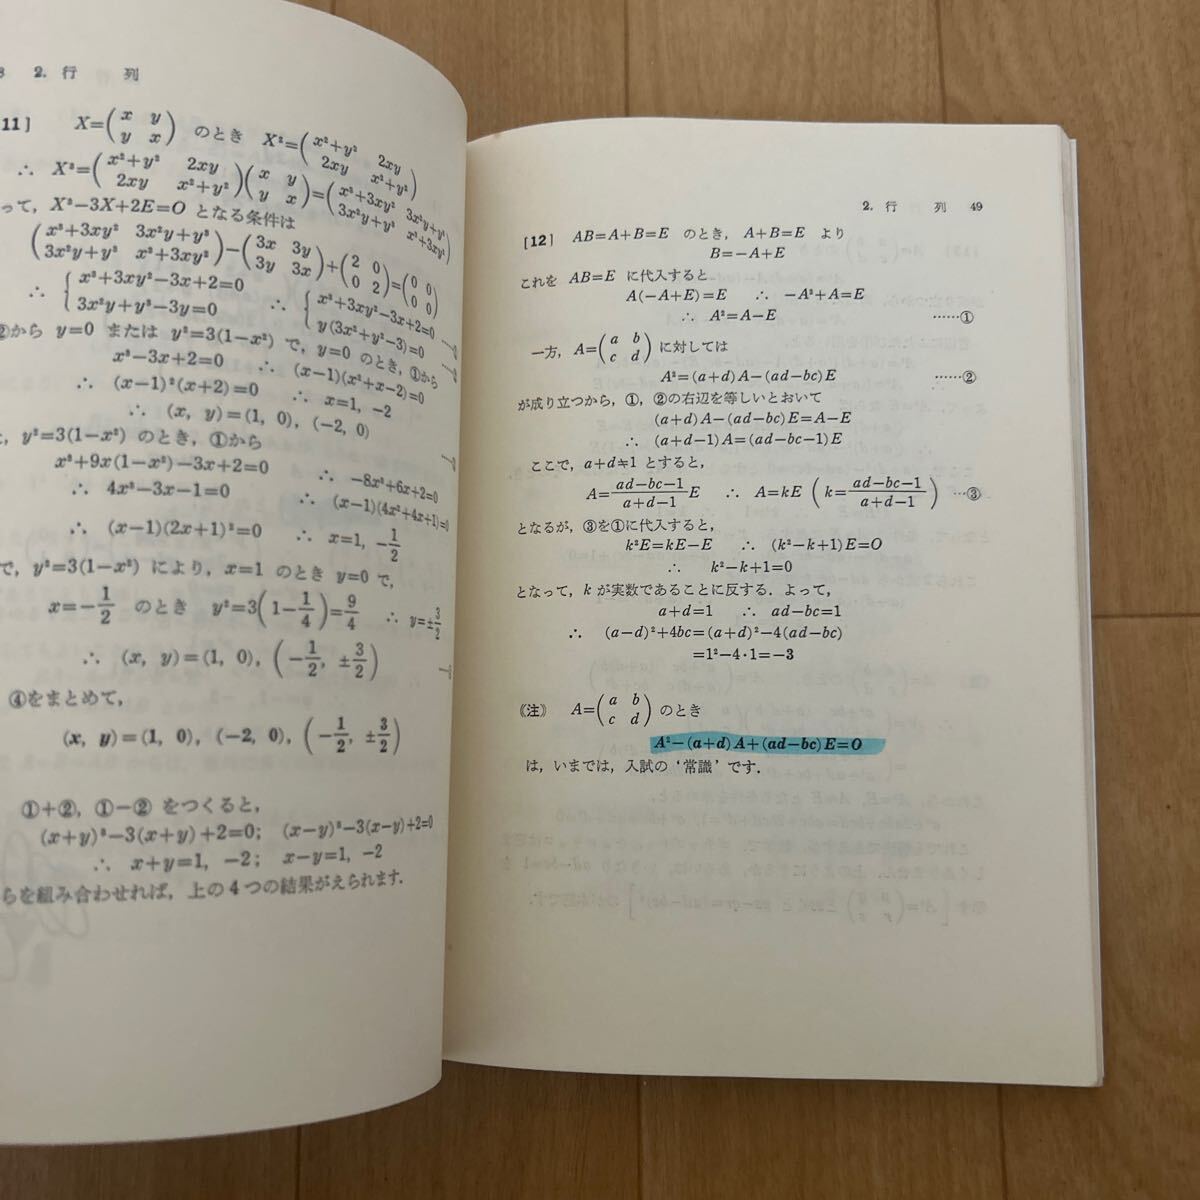 2. 行　列
11]　X=(x y / y x) のとき X²=(x²+y² 2xy / 2xy x²+y²)
∴ X³=(x²+y² 2xy / 2xy x²+y²)(x y / y x)=(x³+3xy² 3x²y+y³ / 3x²y+y³ x³+3xy²)
って，X³−3X+2E=O となる条件は
(x³+3xy² 3x²y+y³ / 3x²y+y³ x³+3xy²)−(3x 3y / 3y 3x)+(2 0 / 0 2)=(0 0 / 0 0)
∴ {x³+3xy²−3x+2=0 / 3x²y+y³−3y=0　∴ {x³+3xy²−3x+2=0 / y(3x²+y²−3)=0
②から y=0 または y²=3(1−x²) で，y=0 のとき，①から
x³−3x+2=0　∴ (x−1)(x²+x−2)=0
∴ (x−1)²(x+2)=0　∴ x=1, −2
∴ (x, y)=(1, 0), (−2, 0)
y²=3(1−x²) のとき，①から
x³+9x(1−x²)−3x+2=0　∴ −8x³+6x+2=0
∴ 4x³−3x−1=0　∴ (x−1)(4x²+4x+1)=0
∴ (x−1)(2x+1)²=0　∴ x=1, −1/2
で，y²=3(1−x²) により，x=1 のとき y=0 で，
x=−1/2 のとき y²=3(1−1/4)=9/4　∴ y=±3/2
∴ (x, y)=(1, 0), (−1/2, ±3/2)
④をまとめて，
(x, y)=(1, 0), (−2, 0), (−1/2, ±3/2)
①+②，①−② をつくると，
(x+y)³−3(x+y)+2=0; (x−y)³−3(x−y)+2=0
∴ x+y=1, −2; x−y=1, −2
らを組み合わせれば，上の4つの結果がえられます．
2. 行　列　49
[12]　AB=A+B=E のとき，A+B=E より
B=−A+E
これを AB=E に代入すると
A(−A+E)=E　∴ −A²+A=E
∴ A²=A−E　……①
一方，A=(a b / c d) に対しては
A²=(a+d)A−(ad−bc)E　……②
が成り立つから，①，②の右辺を等しいとおいて
(a+d)A−(ad−bc)E=A−E
∴ (a+d−1)A=(ad−bc−1)E
ここで，a+d≒1 とすると，
A=(ad−bc−1)/(a+d−1) E　∴ A=kE (k=(ad−bc−1)/(a+d−1))　…③
となるが，③を①に代入すると，
k²E=kE−E　∴ (k²−k+1)E=O
∴ k²−k+1=0
となって，k が実数であることに反する．よって，
a+d=1　∴ ad−bc=1
∴ (a−d)²+4bc=(a+d)²−4(ad−bc)
=1²−4・1=−3
《注》　A=(a b / c d) のとき
A²−(a+d)A+(ad−bc)E=O
は，いまでは，入試の‘常識’です．